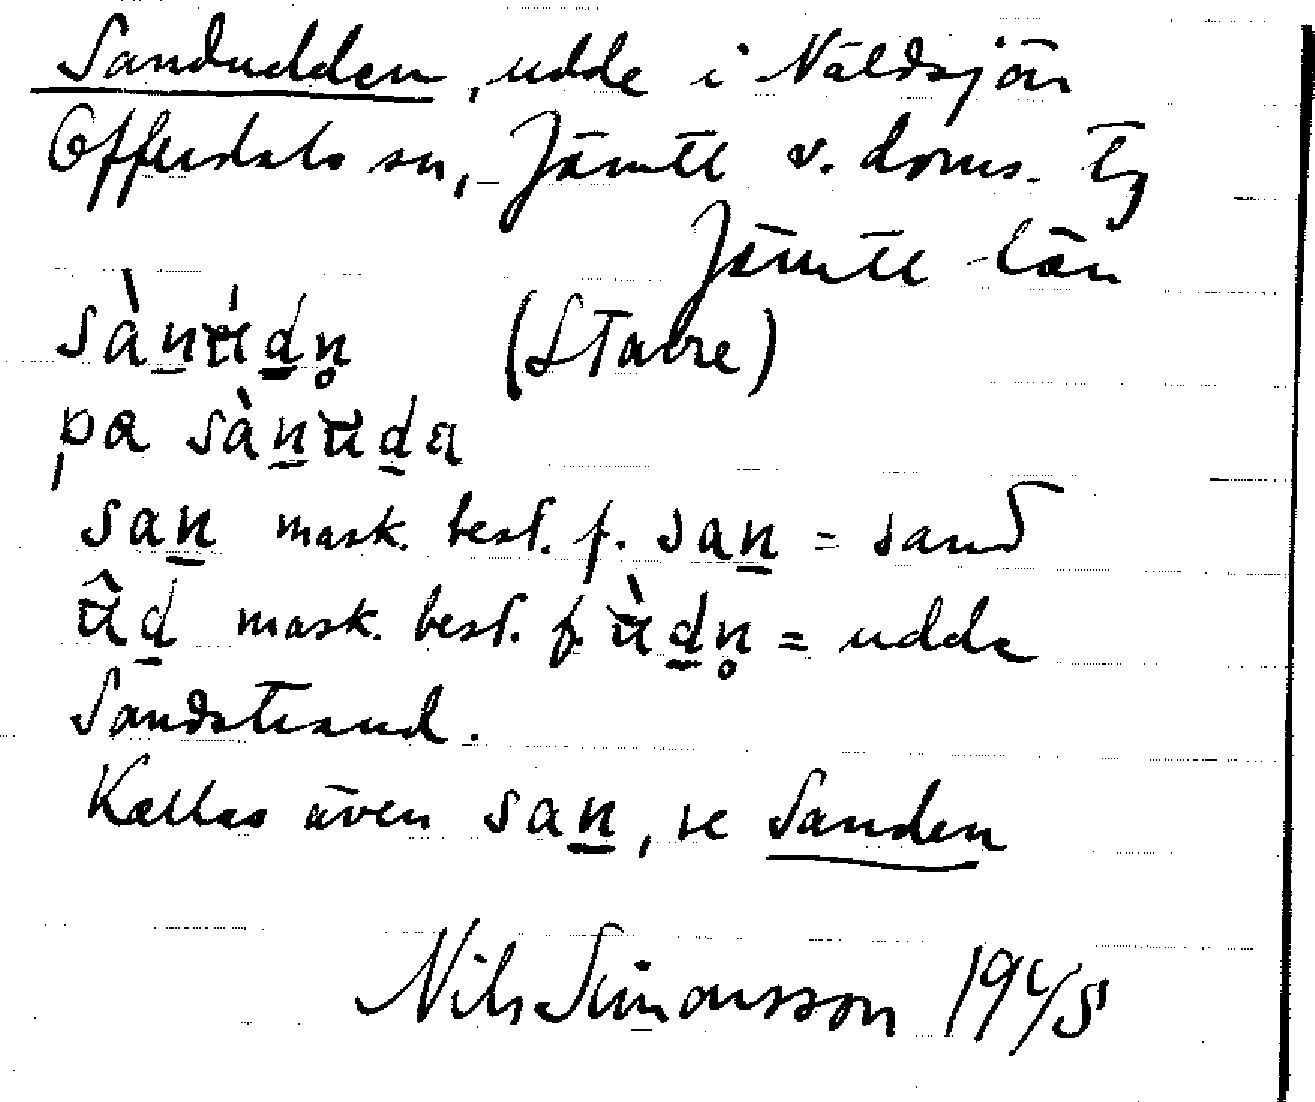 Sandudden, udde i Näldsjön
Offerdals sn, Jämtl v. doms. tg
Jämtl län
sànʉ́dn̥ (Stavre)
pa sànʉda
san mask. best. f. san = sand
ʉ̂d mask. best. f. ʉ̀dn̥ = udde
Sandstrand.
Kallas även san, se Sanden
Nils Simonsson 1945